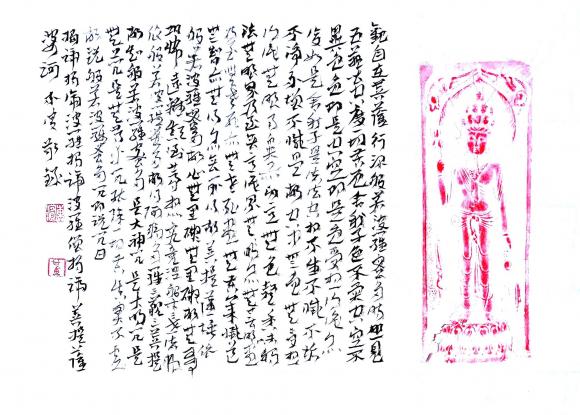 觀自在菩薩行深般若波羅蜜多時照見
五蘊皆空度一切苦厄舍利子色不異空空不
異色色即是空空即是色受想行識亦
復如是舍利子是諸法空相不生不滅不垢
不淨不增不減是故空中無色無受想
行識無眼耳鼻舌身意無色聲香味觸
法無眼界乃至無意識界無無明亦無無明盡
乃至無老死亦無老死盡無苦集滅道
無智亦無得以無所得故菩提薩埵依
般若波羅蜜多故心無罣礙無罣礙故無有
恐怖遠離顛倒夢想究竟涅槃三世諸佛
依般若波羅蜜多故得阿耨多羅三藐三菩提
故知般若波羅蜜多是大神咒是大明咒是
無上咒是無等等咒能除一切苦真實不虛
故說般若波羅蜜多咒即說咒曰
揭諦揭諦波羅揭諦波羅僧揭諦菩提薩
婆訶 敬錄